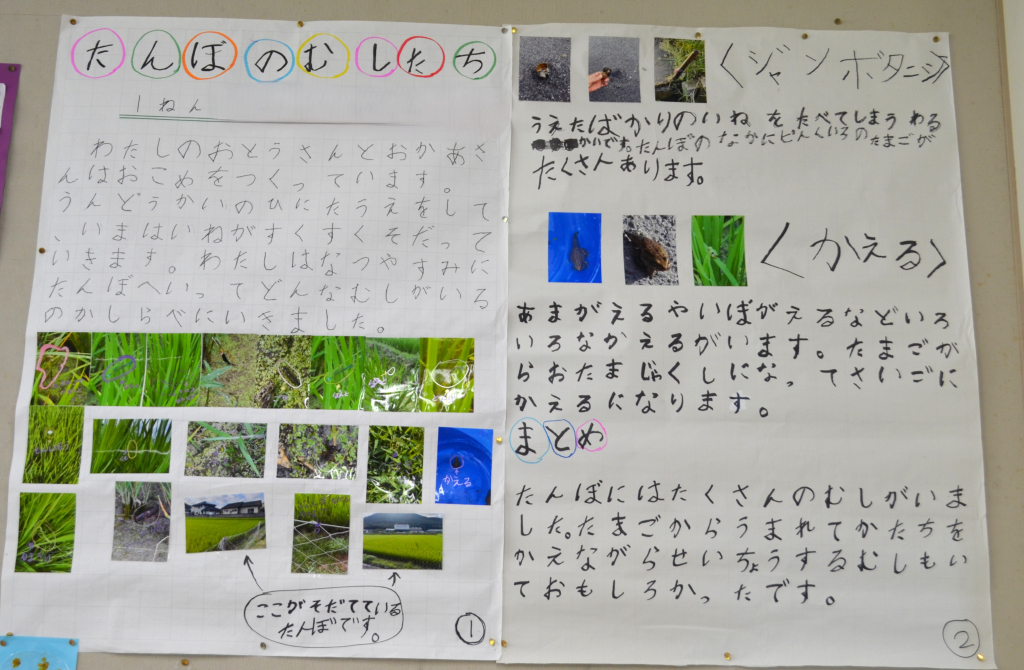 たんぼのむしたち
1ねん
わたしのおとうさんとおかあさ
んはおこめをつくっています。
うんどうかいのひにたうえをして
、いまはいねがすくすくそだって
いきます。わたしはなつやすみに
たんぼへいってどんなむしがいる
のかしらべにいきました。
かえる
ここがそだてている
たんぼです。
①
〈ジャンボタニシ〉
うえたばかりのいねをたべてしまうわる
かいです。たんぼのなかにピンクいろのたまごが
たくさんあります。
〈かえる〉
あまがえるやいぼがえるなどいろ
いろなかえるがいます。たまごが
らおたまじゃくしになってさいごに
かえるになります。
まとめ
たんぼにはたくさんのむしがいま
した。たまごからうまれてかたちを
かえながらせいちょうするむしもい
ておもしろかったです。
②